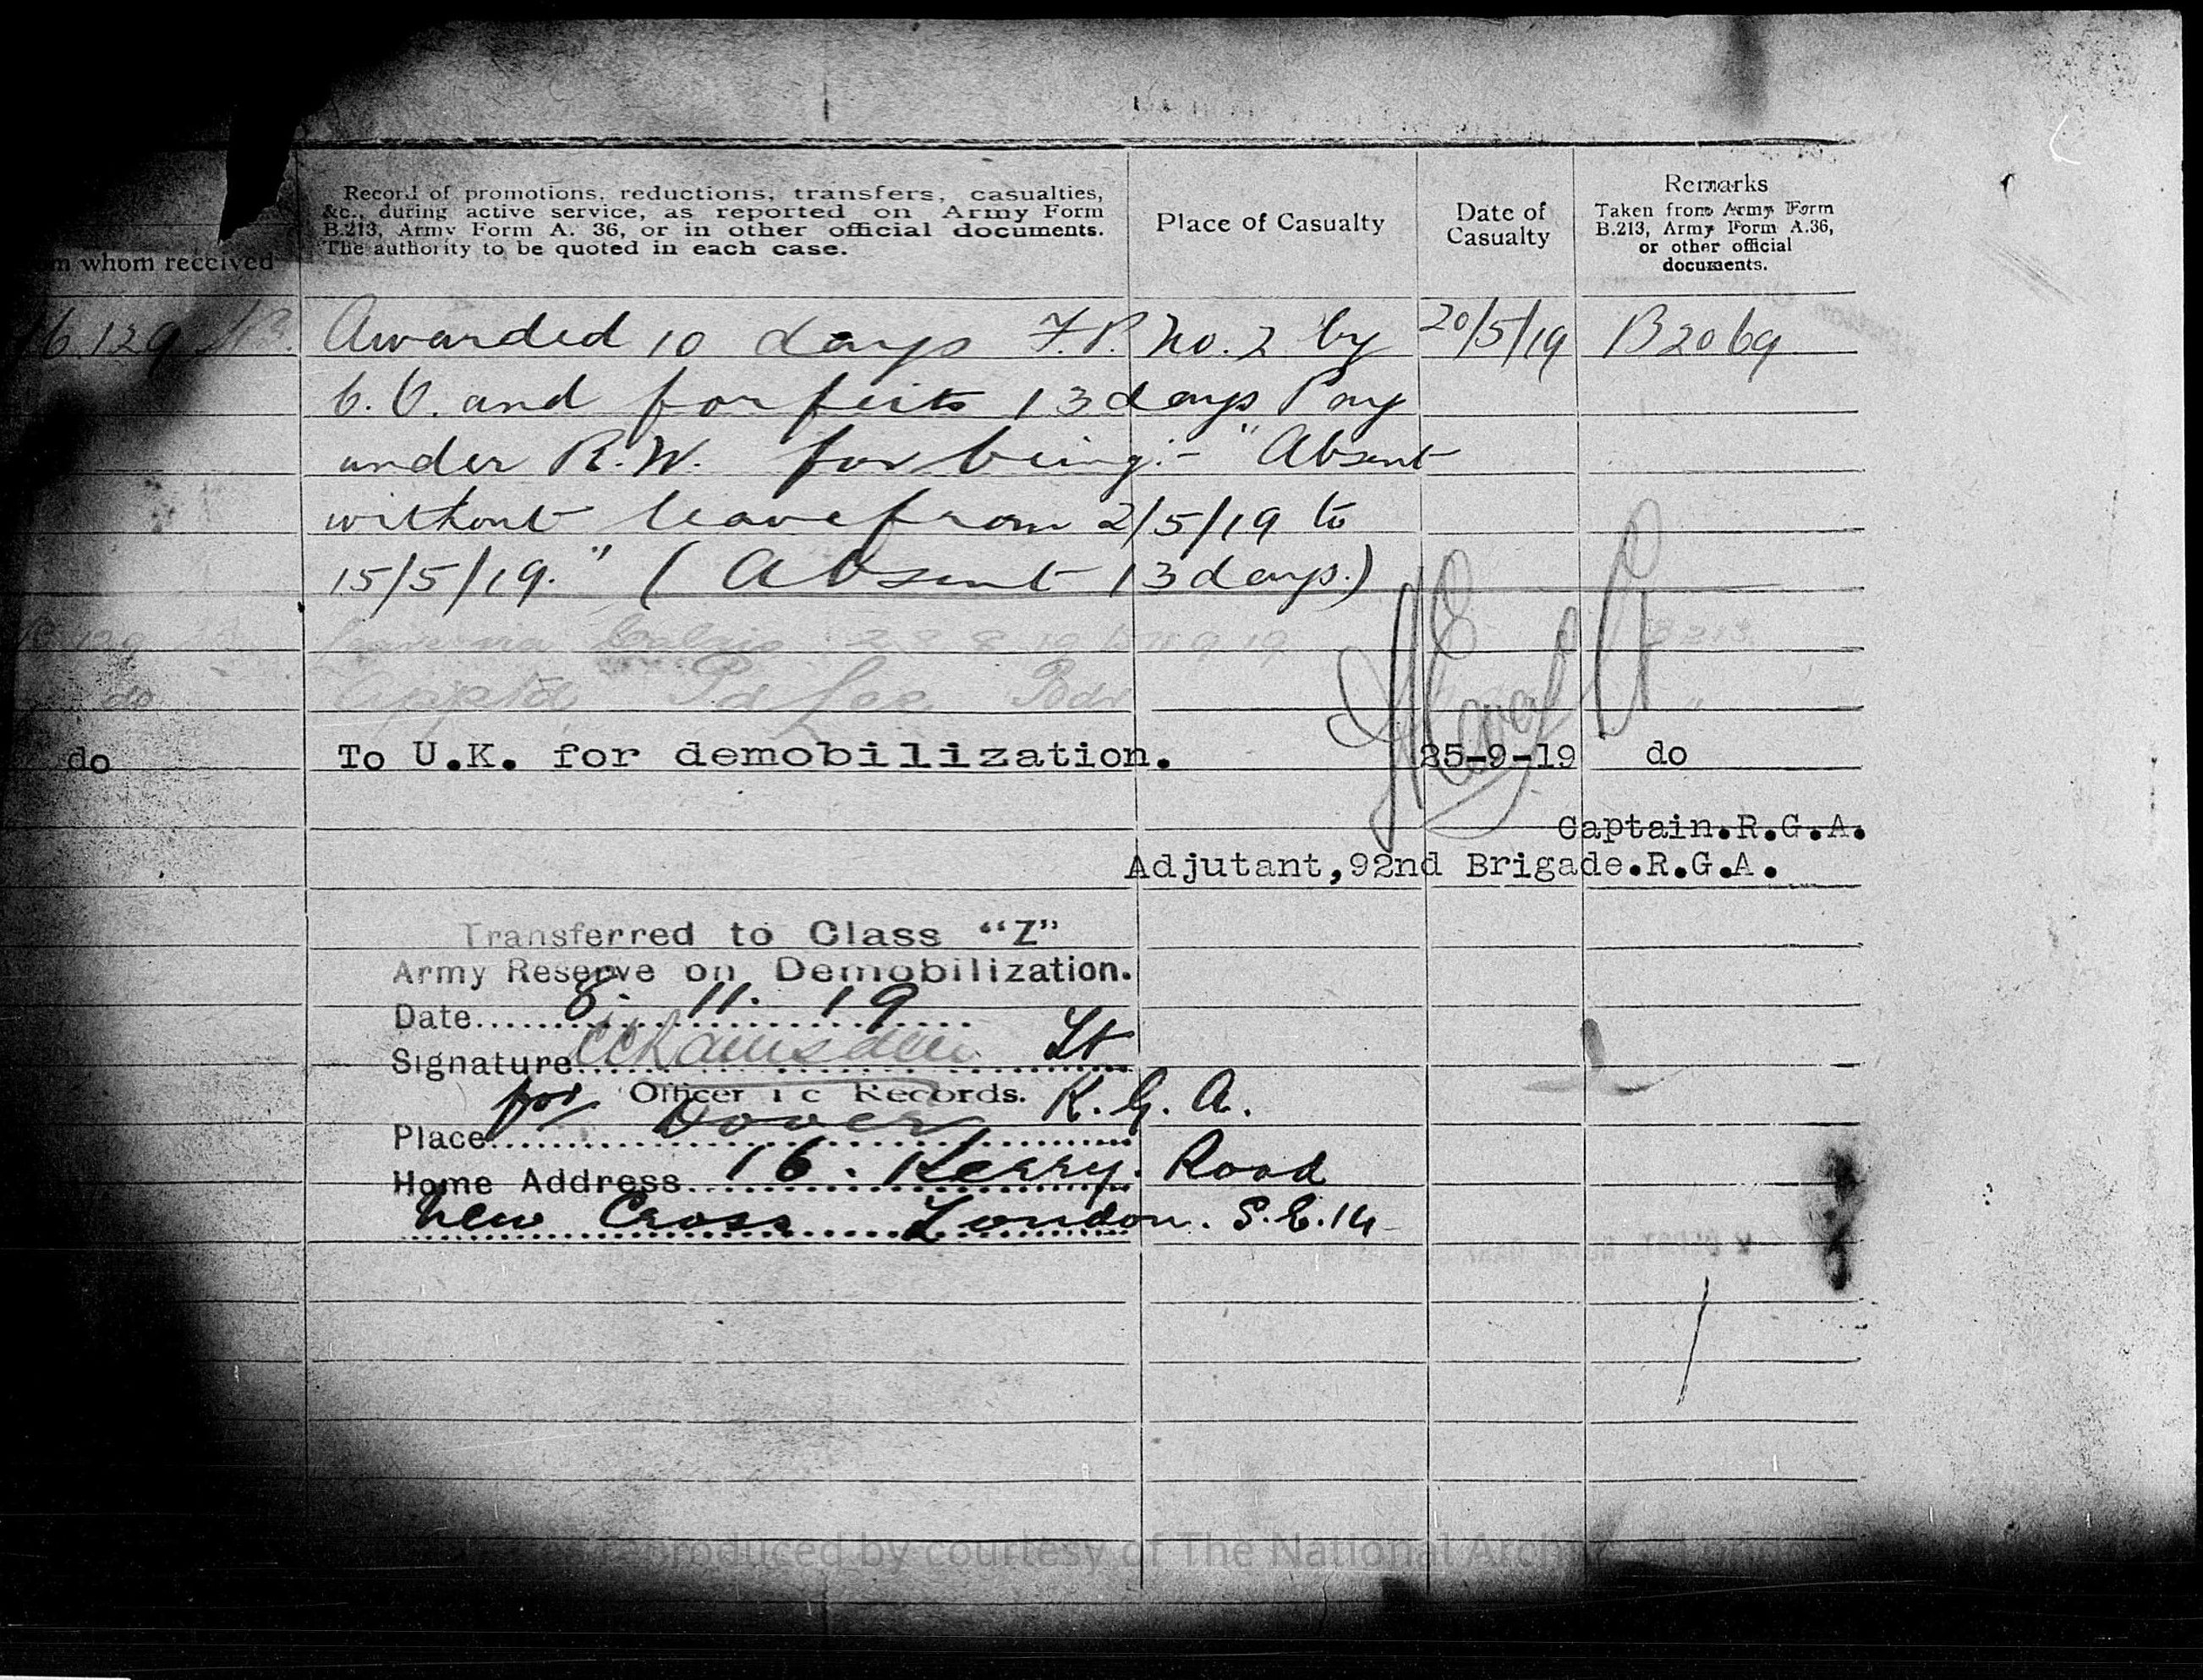 Record of promotions, reductions, transfers, casualties,
&c., during active service, as reported on Army Form
B.213, Army Form A. 36, or in other official documents.
The authority to be quoted in each case.
Place of Casualty
Date of
Casualty
Remarks
Taken from Army Form
B.213, Army Form A.36,
or other official
documents.
m whom received
Awarded 10 days F.P. No. 2 by 20/5/19 B2069
C.O. and forfeits 13 days Pay
under R.W. for being:- "Absent
without leave from 2/5/19 to
15/5/19." (Absent 13 days.)
Leave via Calais 19 9 19 B213
do
do To U.K. for demobilization. 25-9-19 do
Captain.R.G.A.
Adjutant,92nd Brigade.R.G.A.
Transferred to Class "Z"
Army Reserve on Demobilization.
Date 8. 11. 19
Signature Lt
for Officer i c Records. R.G.A.
Place Dover
Home Address 16. Kerry. Road
New Cross London. S.E.14
reproduced by courtesy of The National